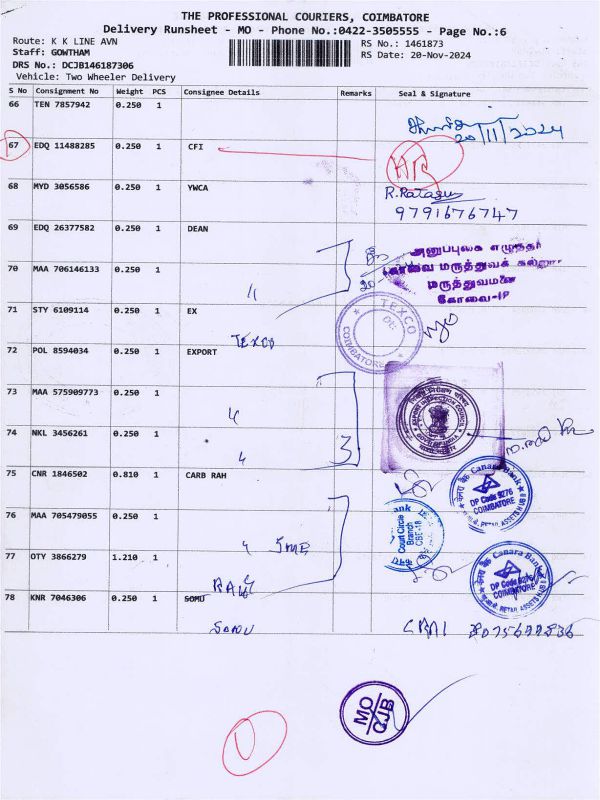 THE PROFESSIONAL COURIERS, COIMBATORE
Delivery Runsheet - MO - Phone No.:0422-3505555 - Page No.:6
Route: K K LINE AVN RS No.: 1461873
Staff: GOWTHAM RS Date: 20-Nov-2024
DRS No.: DCJB146187306
Vehicle: Two Wheeler Delivery
S No Consignment No Weight PCS Consignee Details Remarks Seal & Signature
66 TEN 7857942 0.250 1
20/11/2024
67 EDQ 11488285 0.250 1 CFI
HR
68 MYD 3056586 0.250 1 YWCA
9791676747
69 EDQ 26377582 0.250 1 DEAN
அனுப்புகை எழுத்தர்
மருத்துவக்
மருத்துவமனை
கோவை-18
70 MAA 706146133 0.250 1
71 STY 6109114 0.250 1 EX
TEXCO
TEXCO
COIMBATORE
72 POL 8594034 0.250 1 EXPORT
73 MAA 575909773 0.250 1
EXPORT INSPECTION COUNCIL
74 NKL 3456261 0.250 1
3
75 CNR 1846502 0.810 1 CARB RAH
Canara Bank
DP Code 9276
COIMBATORE
RETAIL ASSETS HUB II
76 MAA 705479055 0.250 1
Court Circle
Branch
CBE-18
77 OTY 3866279 1.210 1
Canara Bank
DP Code 9276
COIMBATORE
RETAIL ASSETS HUB II
78 KNR 7046306 0.250 1 SOMU
MO
CJB